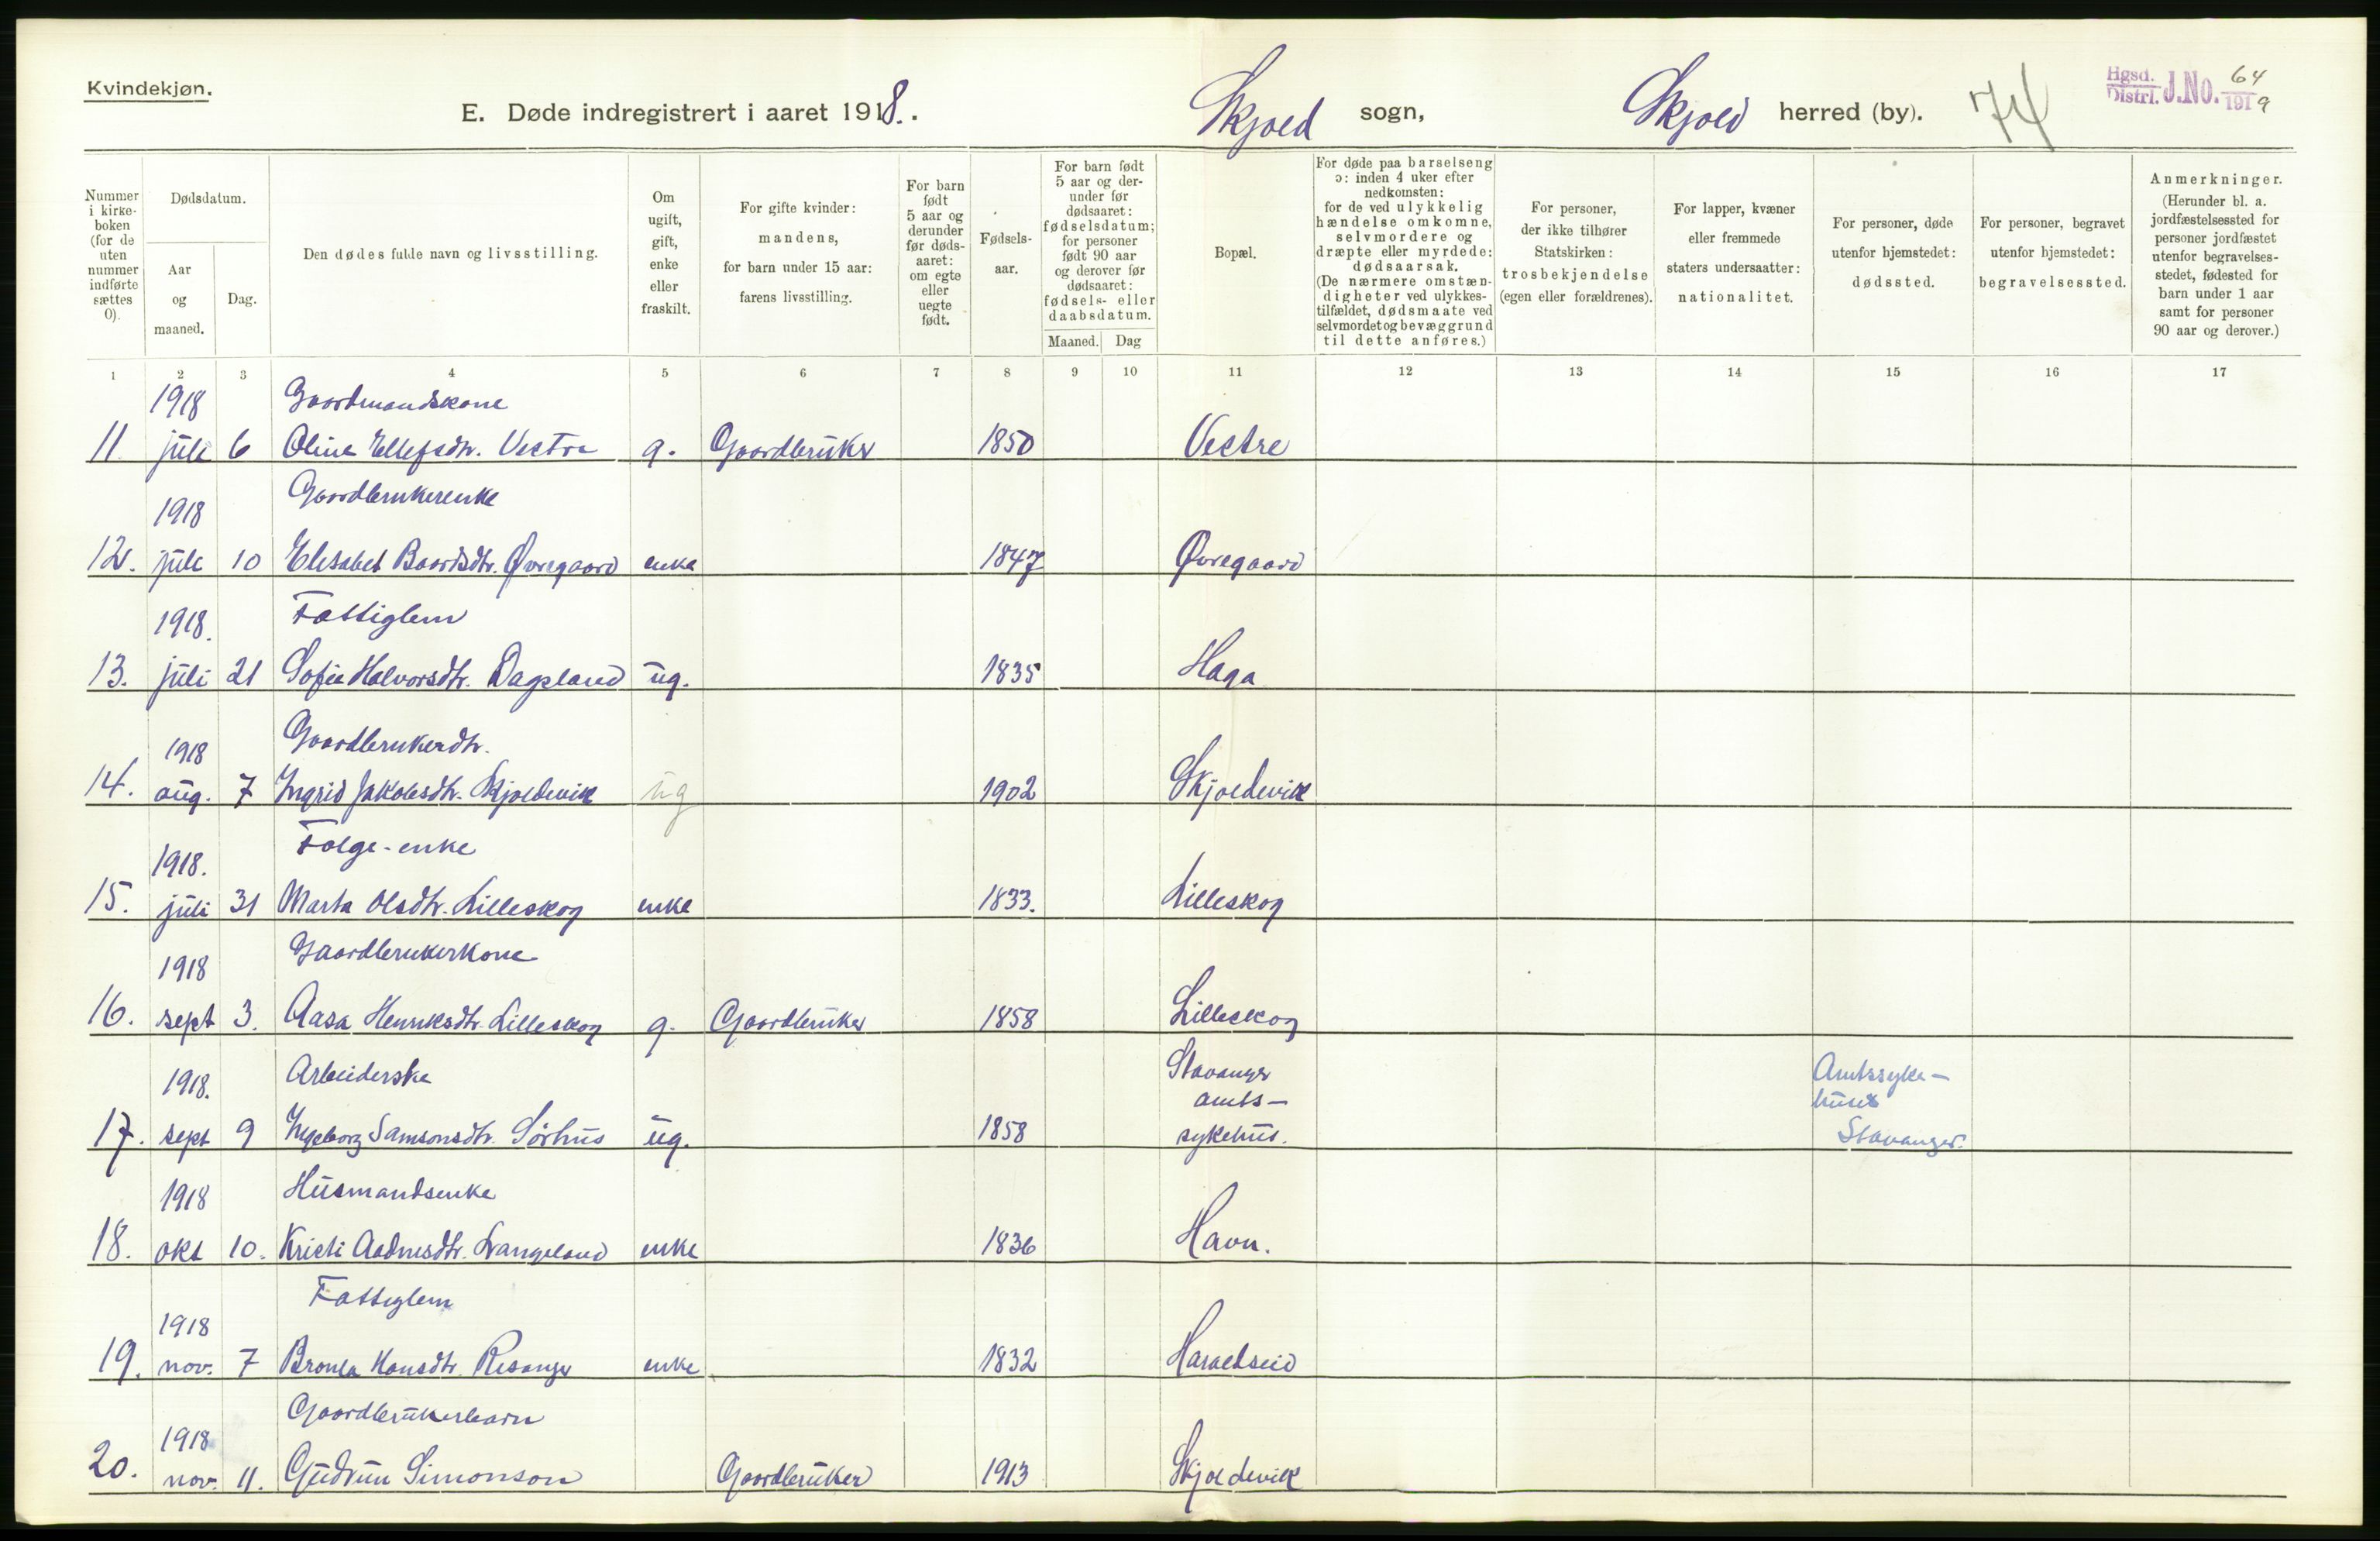 Kvindekjøn.
E. Døde indregistrert i aaret 1918. .
Skjold sogn,
Skjold herred (by).
74
Hgsd. Distr. J.No. 64 1919
Nummer i kirke- boken (for de uten nummer indførte sættes 0).
Dødsdatum.
Aar og maaned.
Dag.
Den dødes fulde navn og livsstilling.
Om ugift, gift, enke eller fraskilt.
For gifte kvinder: mandens, for barn under 15 aar: farens livsstilling.
For barn født 5 aar og derunder før døds- aaret: om egte eller uegte født.
Fødsels- aar.
For barn født 5 aar og der- under før dødsaaret: fødselsdatum; for personer født 90 aar og derover før dødsaaret: fødsels- eller daabsdatum.
Maaned. Dag
Bopæl.
For døde paa barselseng ɔ: inden 4 uker efter nedkomsten: for de ved ulykkelig hændelse omkomne, selvmordere og dræpte eller myrdede: dødsaarsak. (De nærmere omstæn- digheter ved ulykkes- tilfældet, dødsmaate ved selvmord et og bevæggrund til dette anføres.)
For personer, der ikke tilhører Statskirken: trosbekjendelse (egen eller forældrenes).
For lapper, kvæner eller fremmede staters undersaatter: nationalitet.
For personer, døde utenfor hjemstedet: dødssted.
For personer, begravet utenfor hjemstedet: begravelsessted.
Anmerkninger. (Herunder bl. a. jordfæstelsessted for personer jordfæstet utenfor begravelses- stedet, fødested for barn under 1 aar samt for personer 90 aar og derover.)
1 2 3 4 5 6 7 8 9 10 11 12 13 14 15 16 17
1918 Gaardmandskone
11. juli 6 Oline Ellefsdtr. Vestre g. Gaardbruker 1850 Vestre
1918 Gaardbrukerenke
12. juli 10 Elisabet Baardsdtr. Øvregaard enke 1847 Øvregaard
1918. Fattiglem
13. juli 21 Sofie Halvorsdtr. Dagsland ug. 1835 Haga
1918 Gaardbrukerdtr.
14. aug. 7 Ingrid Jakobsdtr. Skjoldevik ug 1902 Skjoldevik
1918. Folge-enke
15. juli 31 Marta Olsdtr. Lilleskog enke 1833. Lilleskog
1918 Gaardbrukerkone
16. sept 3. Aasa Henriksdtr. Lilleskog g. Gaardbruker 1858 Lilleskog
1918. Arbeiderske
17. sept 9 Ingeborg Samsonsdtr. Sørhus ug. 1858 Stavanger amts- sykehus. Amtssyke- huset Stavanger.
1918 Husmandsenke
18. okt 10. Kristi Aadnesdtr. Langeland enke 1836 Havn.
1918 Fattiglem
19. nov. 7 Hansdtr. Risanger enke 1832 Haraldseid
1918 Gaardbrukerbarn
20. nov. 11. Gudrun Simonson Gaardbruker 1913 Skjoldevik